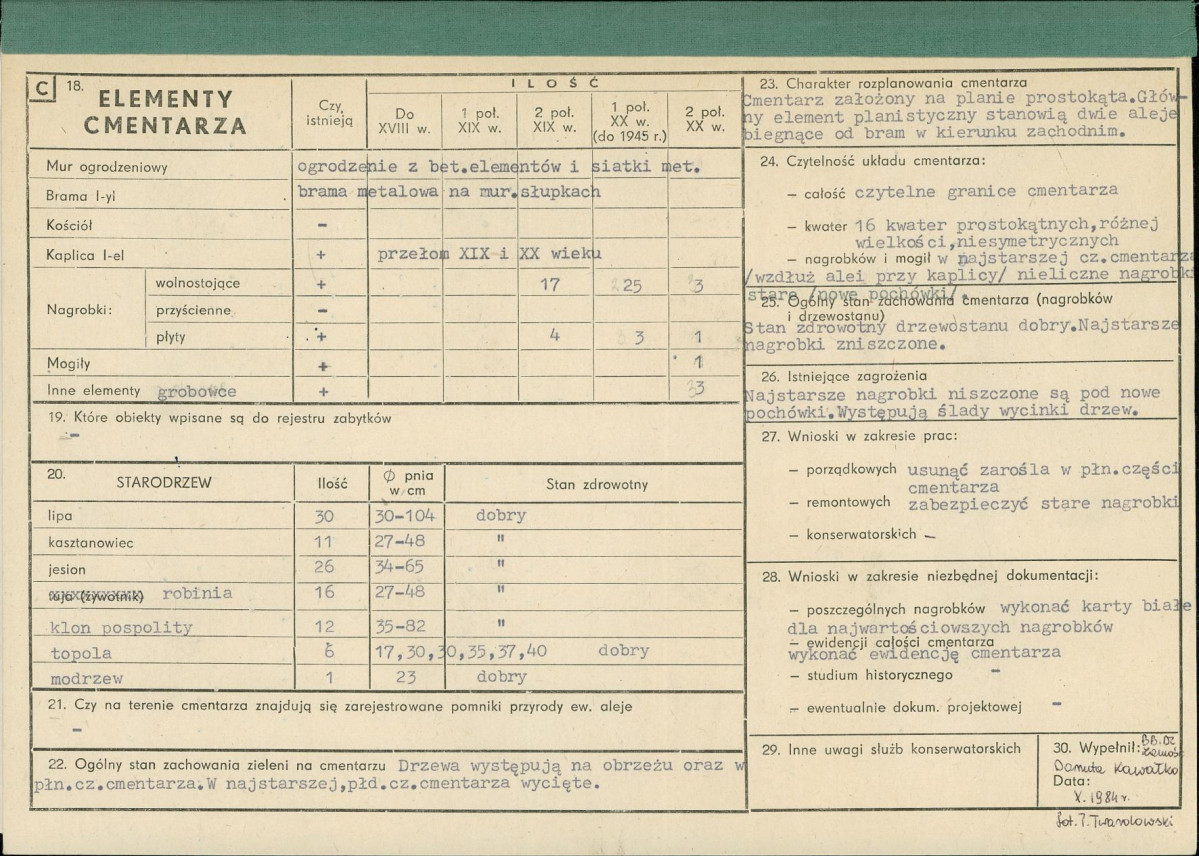 C 18. ELEMENTY CMENTARZA
Czy istnieją
ILOŚĆ
Do XVIII w.
1 poł. XIX w.
2 poł. XIX w.
1 poł. XX w. (do 1945 r.)
2 poł. XX w.
Mur ogrodzeniowy ogrodzenie z bet.elementów i siatki met.
Brama I-yl brama metalowa na mur.słupkach
Kościół -
Kaplica I-el + przełom XIX i XX wieku
Nagrobki:
wolnostojące + 17 25 3
przyścienne -
płyty + 4 3 1
Mogiły + 1
Inne elementy grobowce + 3
19. Które obiekty wpisane są do rejestru zabytków
-
20. STARODRZEW Ilość Ø pnia w cm Stan zdrowotny
lipa 30 30-104 dobry
kasztanowiec 11 27-48 "
jesion 26 34-65 "
tuja (żywotnik) robinia 16 27-48 "
klon pospolity 12 35-82 "
topola 6 17,30,30,35,37,40 dobry
modrzew 1 23 dobry
21. Czy na terenie cmentarza znajdują się zarejestrowane pomniki przyrody ew. aleje
-
22. Ogólny stan zachowania zieleni na cmentarzu Drzewa występują na obrzeżu oraz w
płn.cz.cmentarza.W najstarszej,płd.cz.cmentarza wycięte.
23. Charakter rozplanowania cmentarza
Cmentarz założony na planie prostokąta.Głów-
ny element planistyczny stanowią dwie aleje
biegnące od bram w kierunku zachodnim.
24. Czytelność układu cmentarza:
- całość czytelne granice cmentarza
- kwater 16 kwater prostokątnych,różnej
wielkości,niesymetrycznych
- nagrobków i mogił w najstarszej cz.cmentarza
/wzdłuż alei przy kaplicy/ nieliczne nagrobki
stare /nowe pochówki/.
25. Ogólny stan zachowania cmentarza (nagrobków
i drzewostanu)
Stan zdrowotny drzewostanu dobry.Najstarsze
nagrobki zniszczone.
26. Istniejące zagrożenia
Najstarsze nagrobki niszczone są pod nowe
pochówki.Występują ślady wycinki drzew.
27. Wnioski w zakresie prac:
- porządkowych usunąć zarośla w płn.części
cmentarza
- remontowych zabezpieczyć stare nagrobki
- konserwatorskich -
28. Wnioski w zakresie niezbędnej dokumentacji:
- poszczególnych nagrobków wykonać karty białe
dla najwartościowszych nagrobków
- ewidencji całości cmentarza
wykonać ewidencję cmentarza
- studium historycznego -
- ewentualnie dokum. projektowej -
29. Inne uwagi służb konserwatorskich
30. Wypełnił: BB.DZ Zamość
Danuta Kawałko
Data:
X. 1984 r.
fot. T. Twardowski